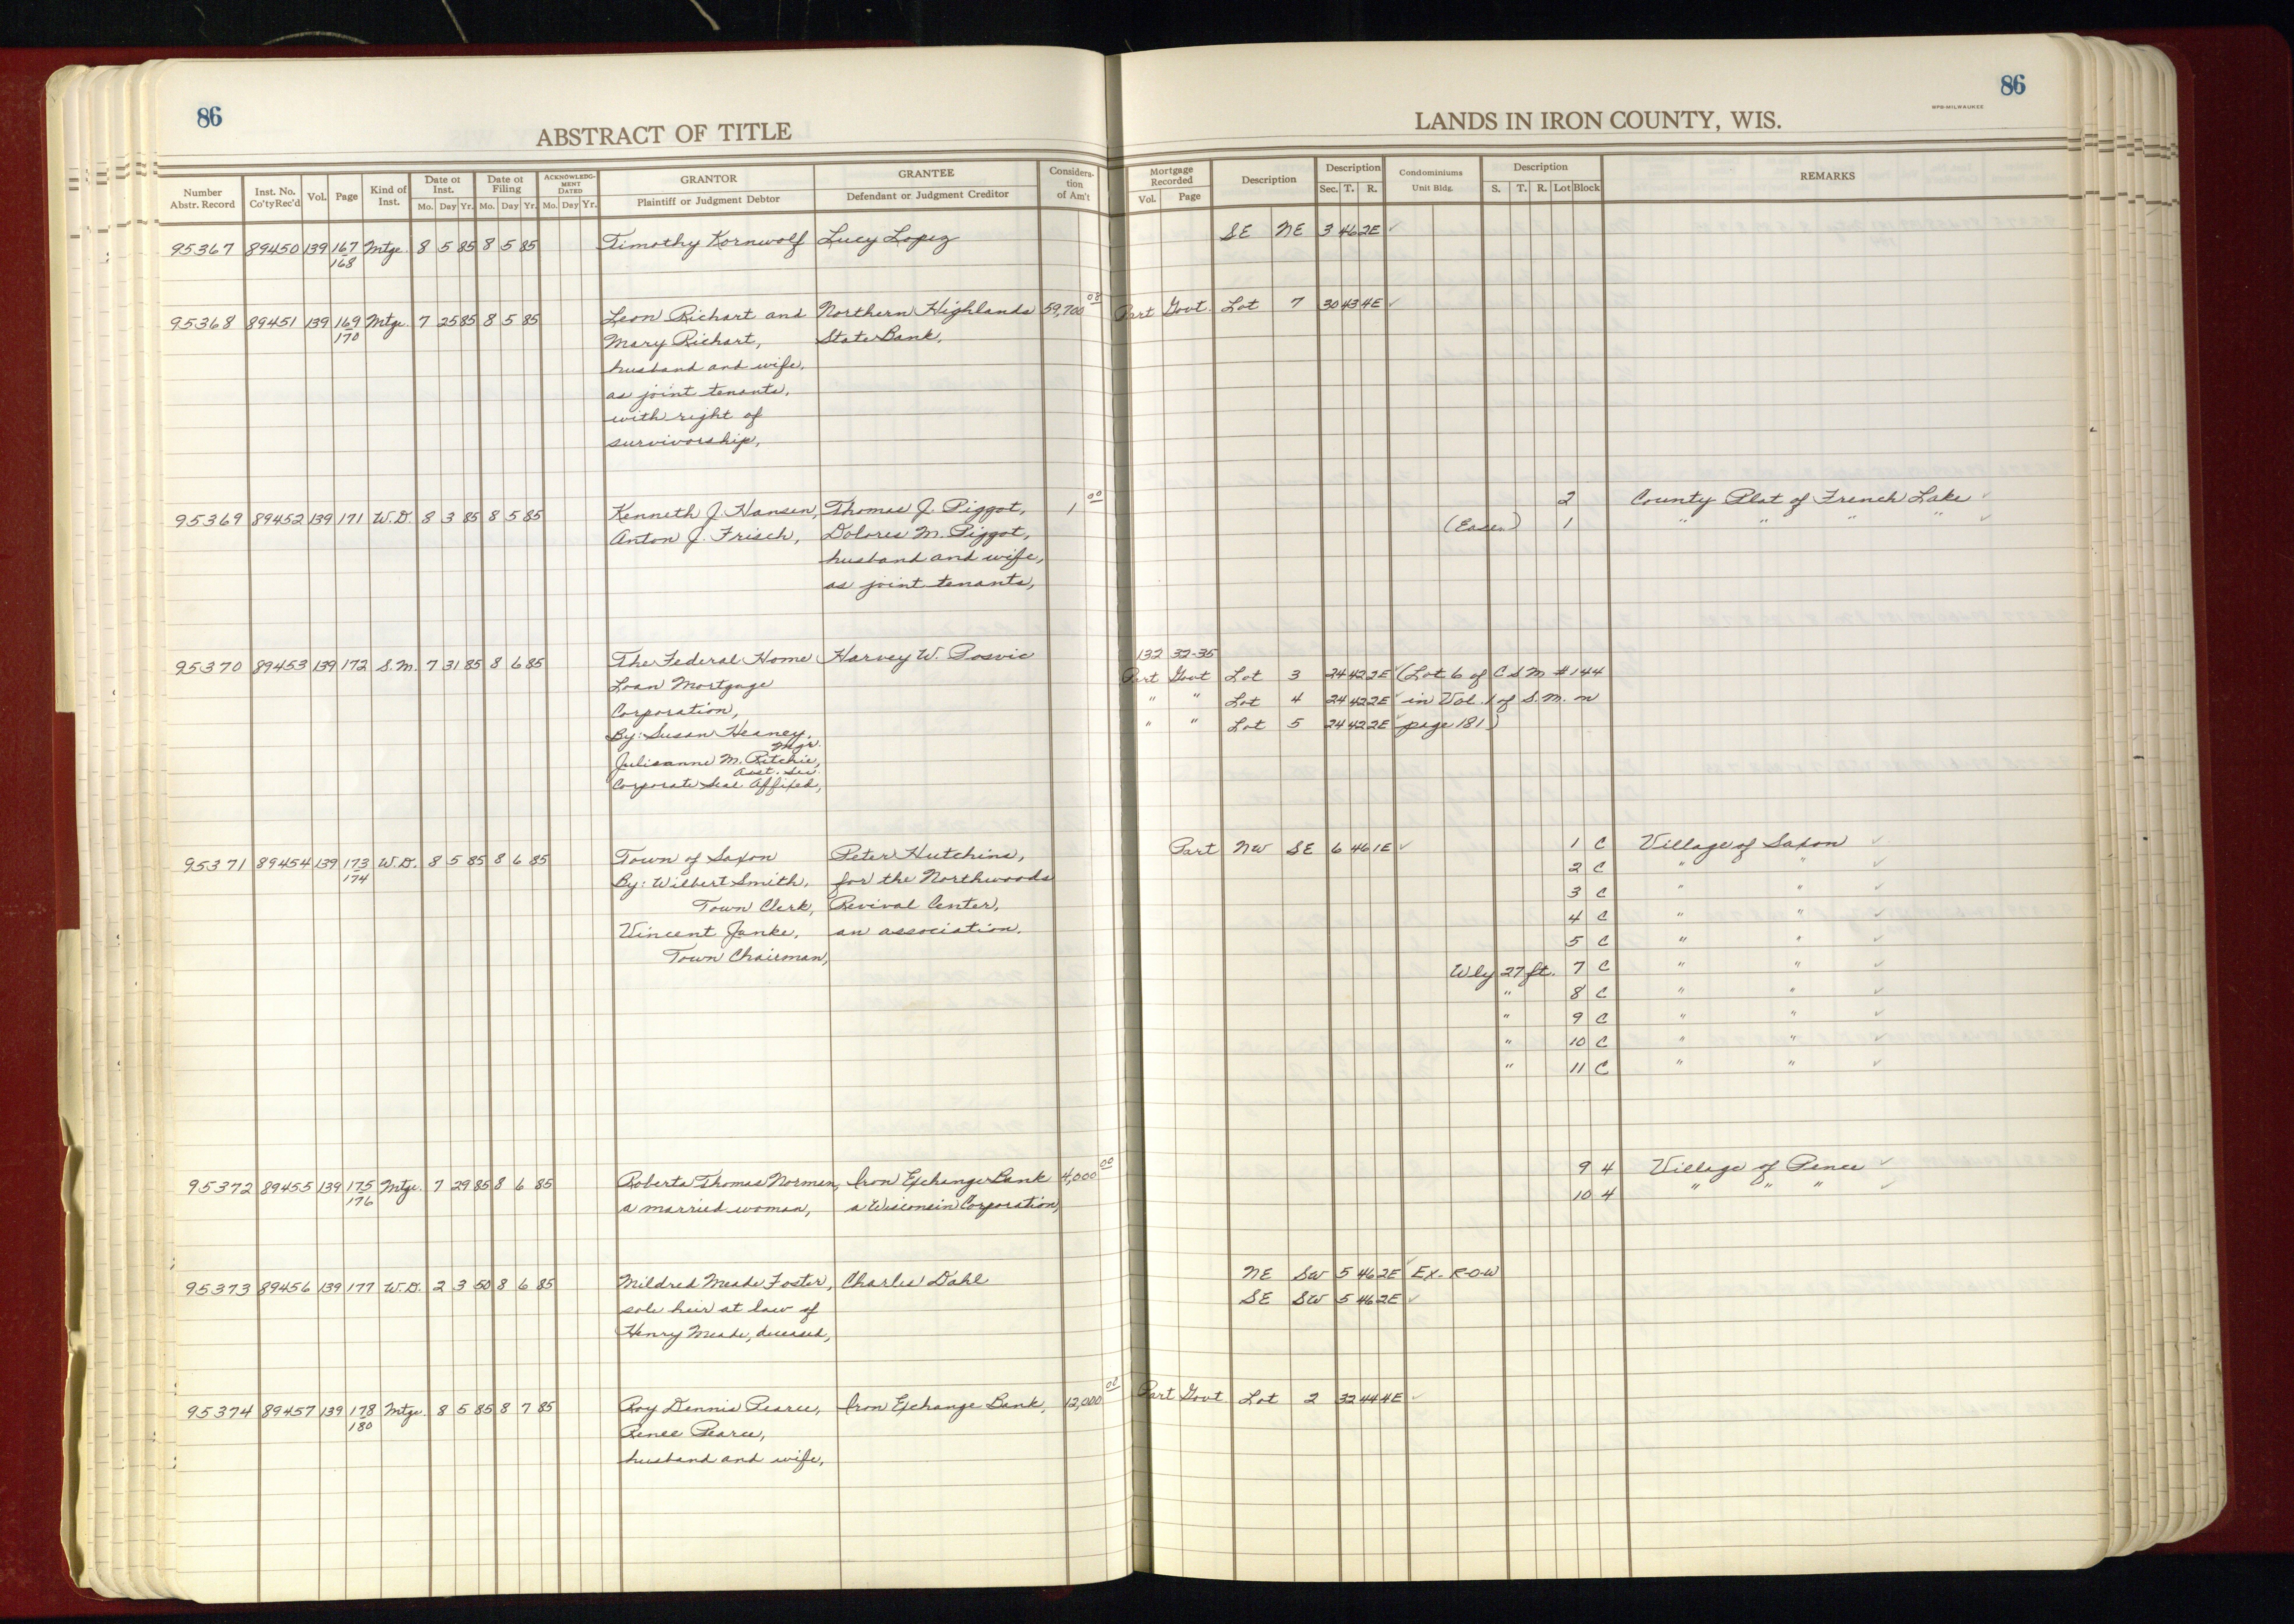 86
ABSTRACT OF TITLE
LANDS IN IRON COUNTY, WIS.
MPB-MILWAUKEE
86
Number Abstr. Record Inst. No. Co'ty Rec'd Vol. Page Kind of Inst. Date of Inst. Mo. Day Yr. Date of Filing Mo. Day Yr. ACKNOWLEDGMENT DATED Mo. Day Yr. GRANTOR Plaintiff or Judgment Debtor GRANTEE Defendant or Judgment Creditor Consideration of Am't
Mortgage Recorded Vol. Page Description Description Sec. T. R. Condominiums Unit Bldg. Description S. T. R. Lot Block REMARKS
95367 89450 139 167 Mtge. 8 5 85 8 5 85 Timothy Kornwolf Lucy Lopez SE NE 3 46 2E ✓
168
95368 89451 139 169 Mtge. 7 25 85 8 5 85 Leon Richart and Northern Highlands 59,700 08 Part Govt. Lot 7 30 43 4E ✓
170 Mary Richart, State Bank,
husband and wife,
as joint tenants,
with right of
survivorship,
95369 89452 139 171 W.D. 8 3 85 8 5 85 Kenneth J. Hansen, Thomas J. Piggot, 1 00 2 County Plat of French Lake ✓
Anton J. Frisch, Dolores M. Piggot, (Ease.) 1 " " " " ✓
husband and wife,
as joint tenants,
95370 89453 139 172 S.M. 7 31 85 8 6 85 The Federal Home Harvey W. Posvic 132 32-35
Loan Mortgage Part Govt Lot 3 24 42 2E ✓ (Lot 6 of CSM #144
Corporation, " " Lot 4 24 42 2E ✓ in Vol. 1 of S.M. on
By: Susan Heaney, " " Lot 5 24 42 2E ✓ page 181)
Mgr.
Julieanne M. Ritchie,
Asst. Sec.
Corporate Seal Affixed,
95371 89454 139 173 W.D. 8 5 85 8 6 85 Town of Saxon Peter Hutchins, Part NW SE 6 46 1E ✓ 1 C Village of Saxon ✓
174 By: Wilbert Smith, for the Northwoods 2 C " " ✓
Town Clerk, Revival Center, 3 C " " ✓
Vincent Janke, an association, 4 C " " ✓
Town Chairman, 5 C " " ✓
Wly 27 ft. 7 C " " ✓
" 8 C " " ✓
" 9 C " " ✓
" 10 C " " ✓
" 11 C " " ✓
95372 89455 139 175 Mtge. 7 29 85 8 6 85 Roberta Thomas Norman, Iron Exchange Bank 4,000 00 9 4 Village of Pence ✓
176 a married woman, a Wisconsin Corporation, 10 4 " " " ✓
95373 89456 139 177 W.D. 2 3 50 8 6 85 Mildred Meade Foster, Charles Dahl NE SW 5 46 2E ✓ Ex. R-O-W
sole heir at law of SE SW 5 46 2E ✓
Henry Meade, deceased,
95374 89457 139 178 Mtge. 8 5 85 8 7 85 Roy Dennis Pearce, Iron Exchange Bank, 12,000 00 Part Govt Lot 2 32 44 4E ✓
180 Renee Pearce,
husband and wife,